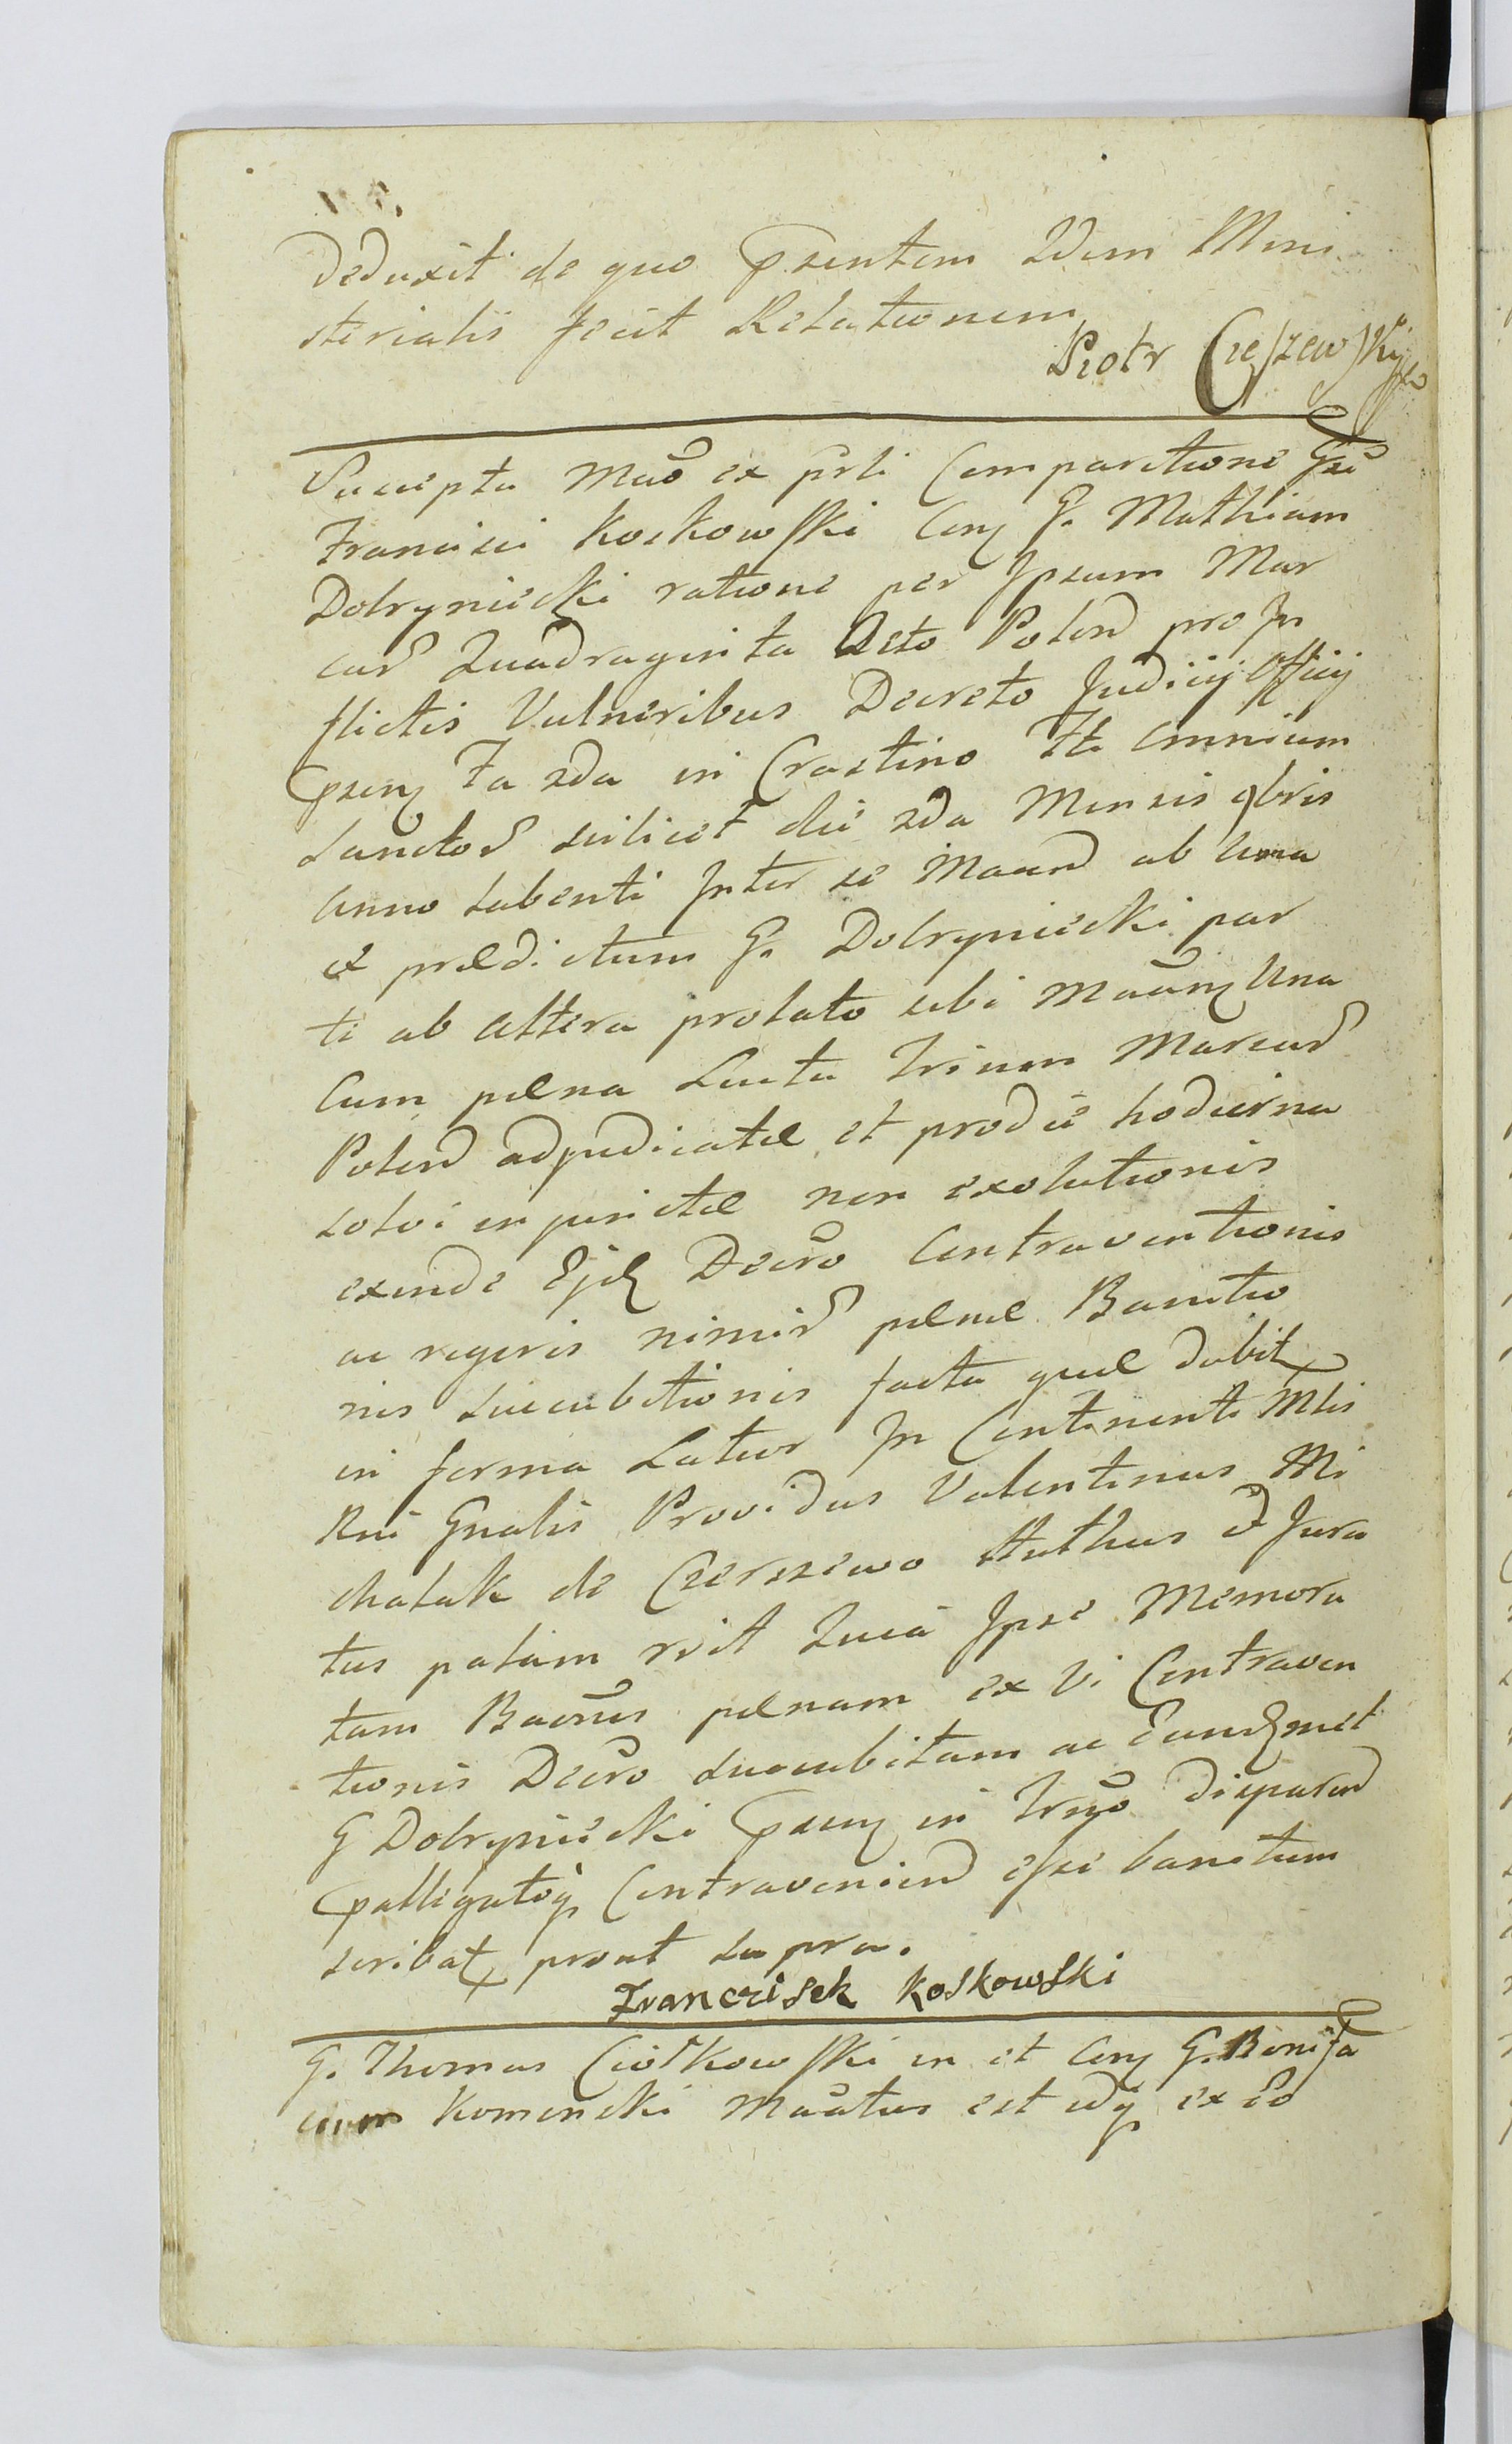 Deduxit de quo Psentem Idem Mini
sterialis fecit Relationem
Piotr Cieszewski
Suscepta Mão ex psli Comparitione Gsi
Francisci Koskowski Con G. Mathiam
Dobrzyniecki ratione per Ipsum Mar
car Quadraginta Octo Polon pro In
flictis Vulneribus Decreto Judicij Officij
psen Fa 2da in Crastino Fti Omnium
Sanctor scilicet die 2da Mensis 9bris
Anno Labenti Inter se Maam ab Una
et prædictum G. Dobrzyniecki par
te ab Altera prolato sibi Maan Una
Cum pæna Lucta Trium Marcar
Polon adjudicatæ, et pro die hodierna
solvi injunctæ non exolutionis
exinde Ejd Decro Contraventionis
ac regeris nimir pænæ Banitio
nis Succubitionis facta quæ dabit
in forma Latior In Continenti Mlis
Rni Gnalis Providus Valentinus Mi
chalak de Czerszewo Authus et Jura
tus palam rvit Quia Ipse Memora
tam Baonis pænam ex Vi Contraven
tionis Decro Succubitam ac Eundmet
G Dobrzyniecki psen in Trgo disparen
palligatoq Contravenien esse banitum
scribat prout supra.
Franciszek Koskowski
G. Thomas Ciołkowski in et Con G. Bonifa
cium Komencki Maatus est idq ex Eo